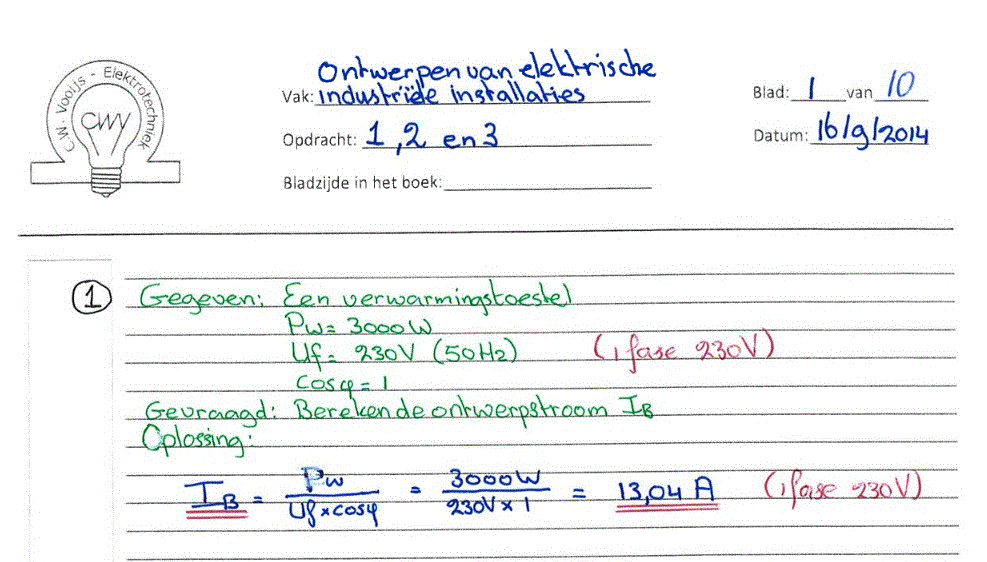 C.W. Vooijs - Elektrotechniek
CWV
Ontwerpen van elektrische
Vak: industriële installaties
Blad: 1 van 10
Opdracht: 1, 2 en 3
Datum: 16/9/2014
Bladzijde in het boek:
1 Gegeven: Een verwarmingstoestel
Pw = 3000W
Uf = 230V (50Hz) (1 fase 230V)
cosφ = 1
Gevraagd: Bereken de ontwerpstroom IB
Oplossing:
IB = Pw / Uf × cosφ = 3000W / 230V × 1 = 13,04 A (1 fase 230V)